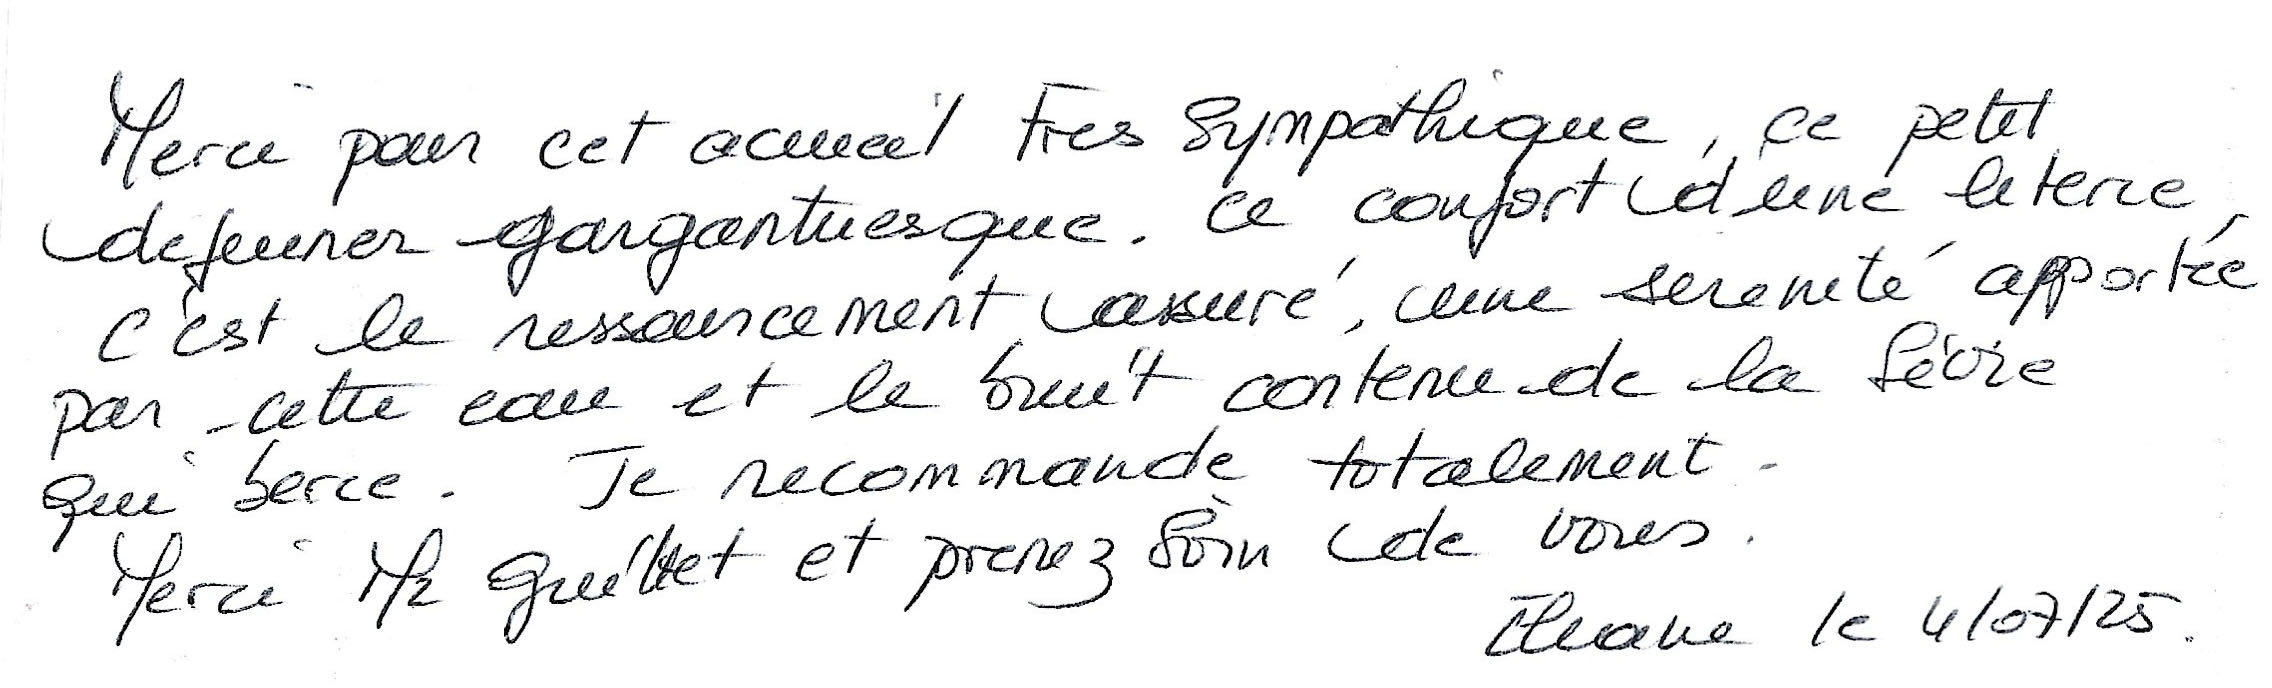 Merci pour cet acueil tres sympathique, ce petit
dejeuner gargantuesque. Ce confort d'une literie,
c'est le ressourcement assuré, une sereneté apportée
par cette eau et le bruit contenu de la Sèvre
qui berce. Je recommande totalement.
Merci Mr Guillet et prenez soin de vous.
le 4/07/25.